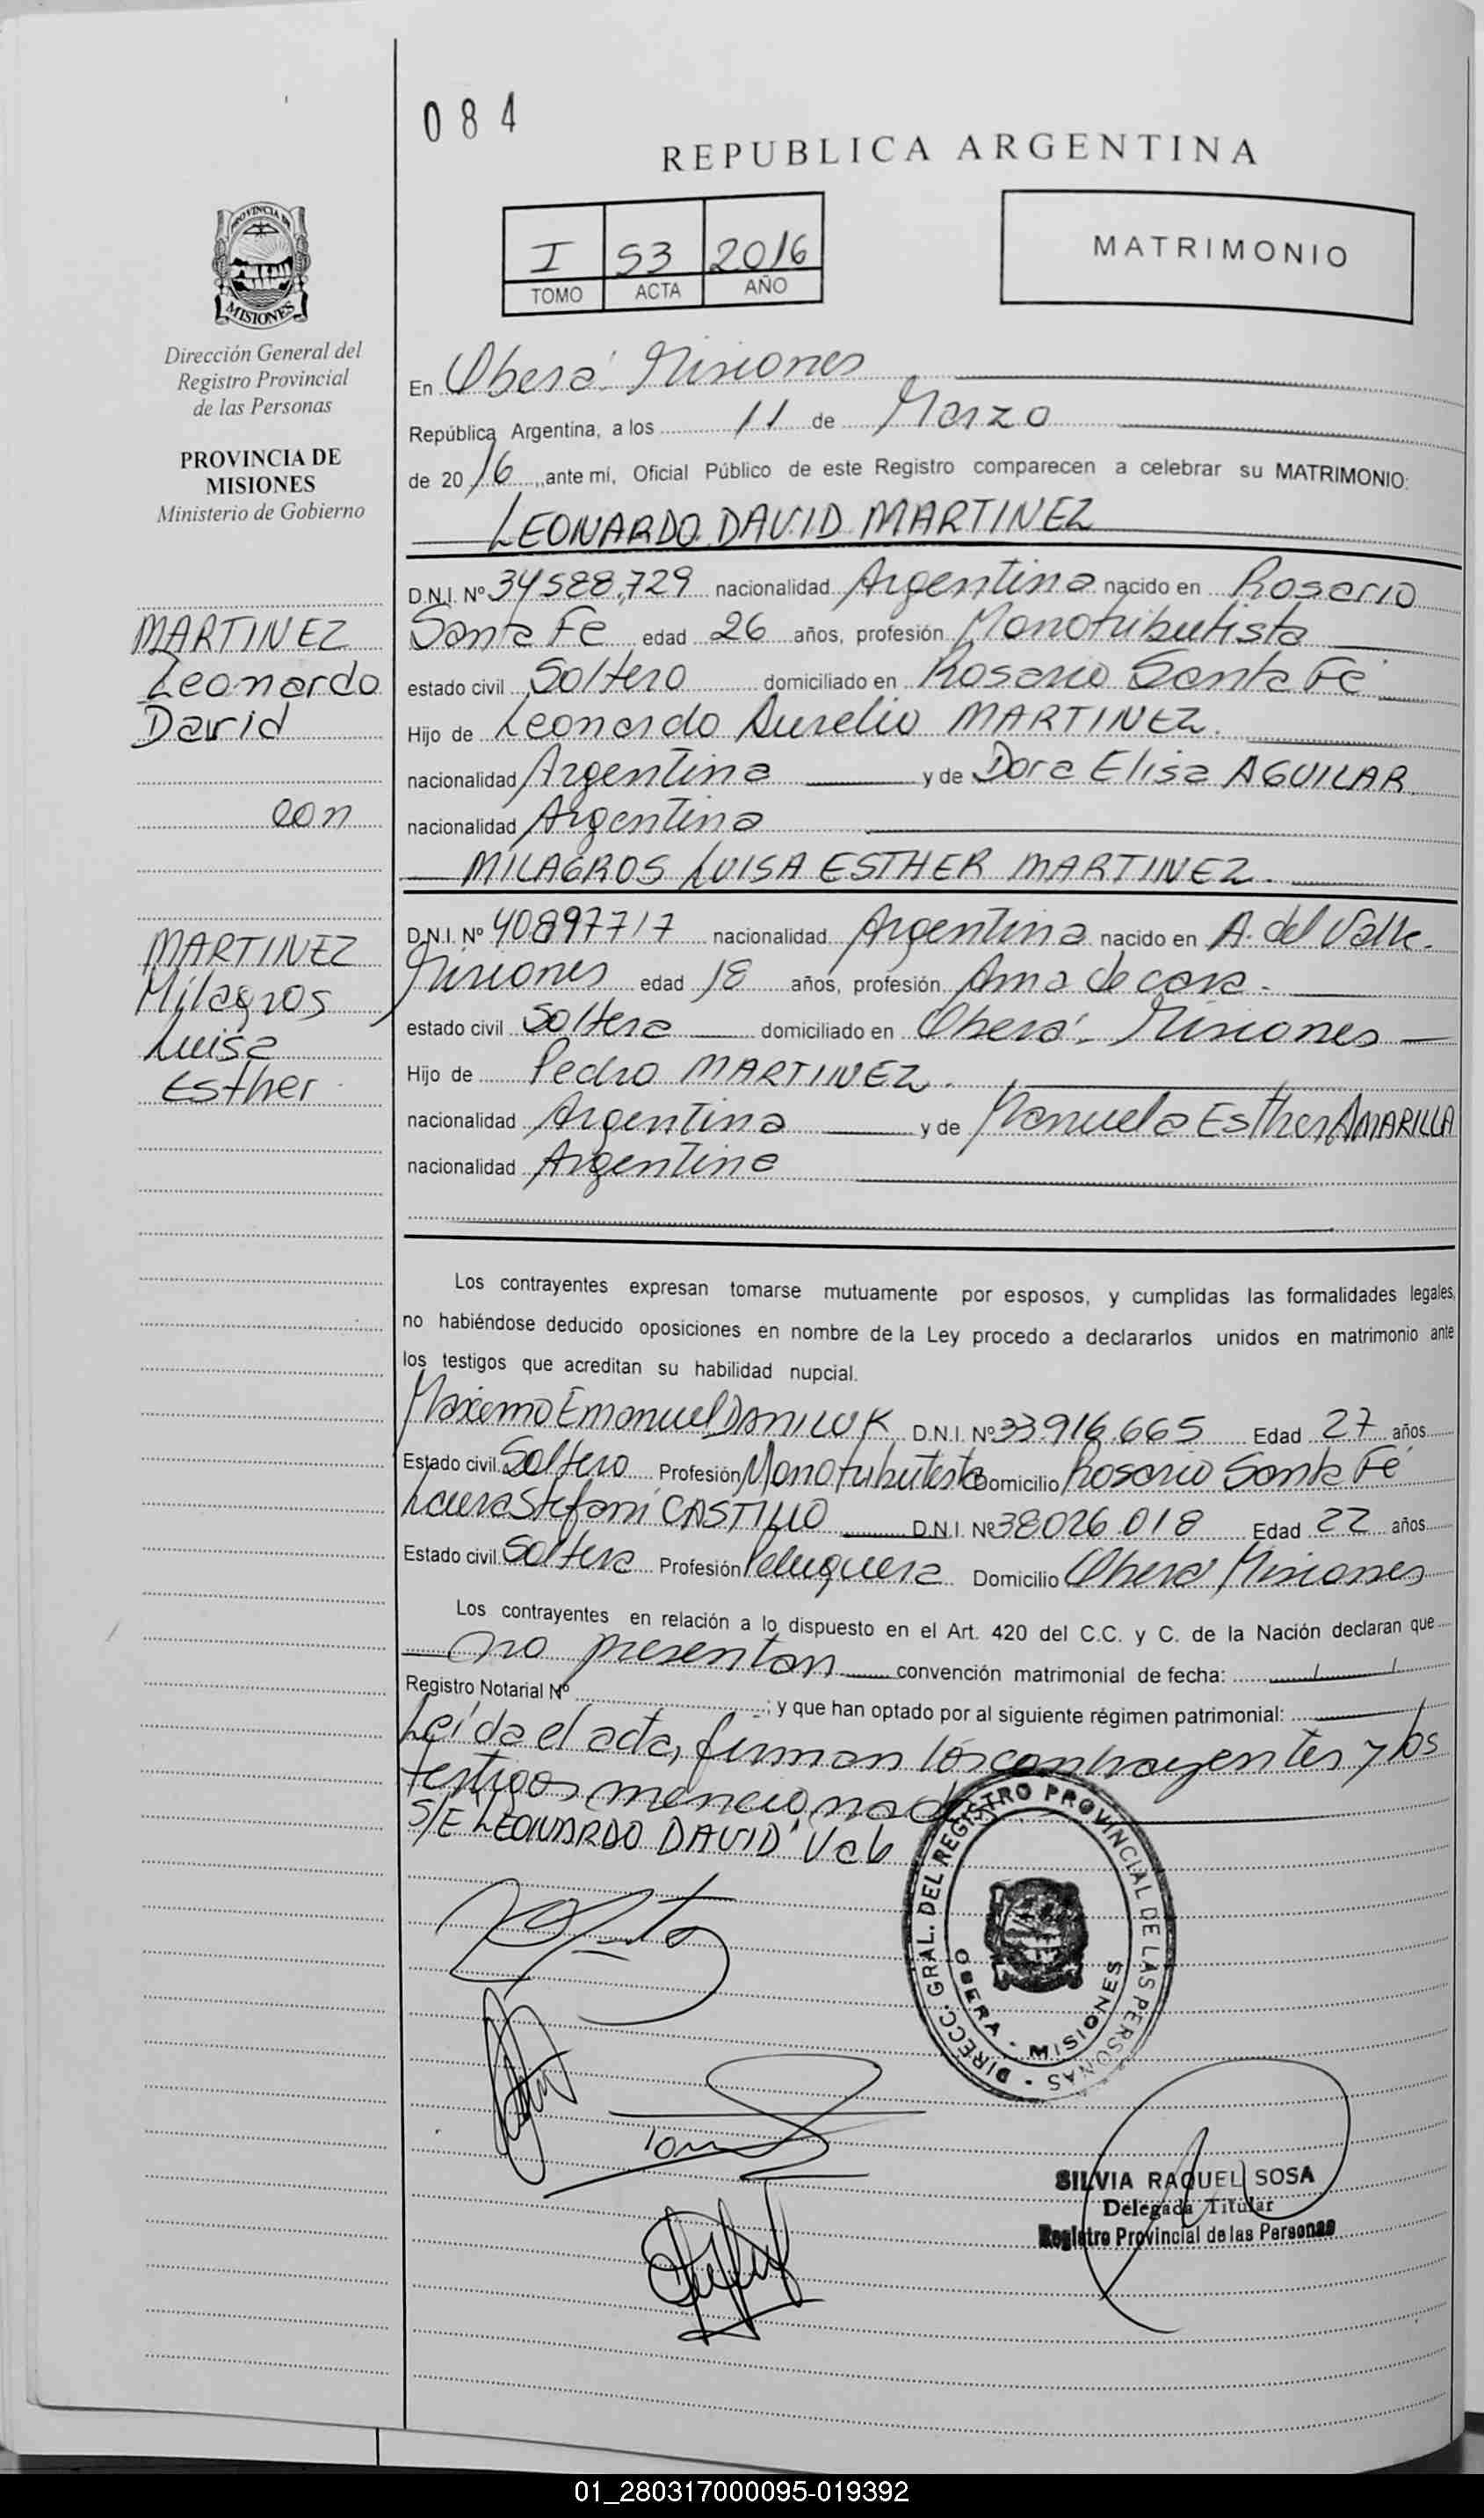 084
REPUBLICA ARGENTINA
I 53 2016
TOMO ACTA AÑO
MATRIMONIO
PROVINCIA DE
MISIONES
Dirección General del
Registro Provincial
de las Personas
PROVINCIA DE
MISIONES
Ministerio de Gobierno
MARTINEZ
Leonardo
David
con
MARTINEZ
Milagros
Luisa
Esther
En Oberá Misiones
República Argentina, a los 11 de Marzo
de 2016, ante mí, Oficial Público de este Registro comparecen a celebrar su MATRIMONIO:
LEONARDO DAVID MARTINEZ
D.N.I. Nº 34588.729 nacionalidad Argentina nacido en Rosario
Santa Fe edad 26 años, profesión Monotributista
estado civil Soltero domiciliado en Rosario Santa Fe
Hijo de Leonardo Aurelio MARTINEZ.
nacionalidad Argentina y de Dora Elisa AGUILAR
nacionalidad Argentina
MILAGROS LUISA ESTHER MARTINEZ.
D.N.I. Nº 40897717 nacionalidad Argentina nacido en A. del Valle.
Misiones edad 18 años, profesión Ama de casa.
estado civil Soltera domiciliado en Oberá. Misiones
Hijo de Pedro MARTINEZ.
nacionalidad Argentina y de Manuela Esther AMARILLA
nacionalidad Argentina
Los contrayentes expresan tomarse mutuamente por esposos, y cumplidas las formalidades legales,
no habiéndose deducido oposiciones en nombre de la Ley procedo a declararlos unidos en matrimonio ante
los testigos que acreditan su habilidad nupcial.
Máximo Emanuel DANILUK D.N.I. Nº 33.916.665 Edad 27 años
Estado civil Soltero Profesión Monotributista Domicilio Rosario Santa Fé
Laura Stefani CASTILLO D.N.I. Nº 38026.018 Edad 22 años
Estado civil Soltera Profesión Peluquera Domicilio Oberá Misiones
Los contrayentes en relación a lo dispuesto en el Art. 420 del C.C. y C. de la Nación declaran que
no presentan convención matrimonial de fecha: / /
Registro Notarial Nº ; y que han optado por al siguiente régimen patrimonial:
Leída el acta, firman los contrayentes y los
testigos mencionados
S/E LEONARDO DAVID Vale
DIRECC. GRAL. DEL REGISTRO PROVINCIAL DE LAS PERSONAS -
OBERA - MISIONES
SILVIA RAQUEL SOSA
Delegada Titular
Registro Provincial de las Personas
01_280317000095-019392